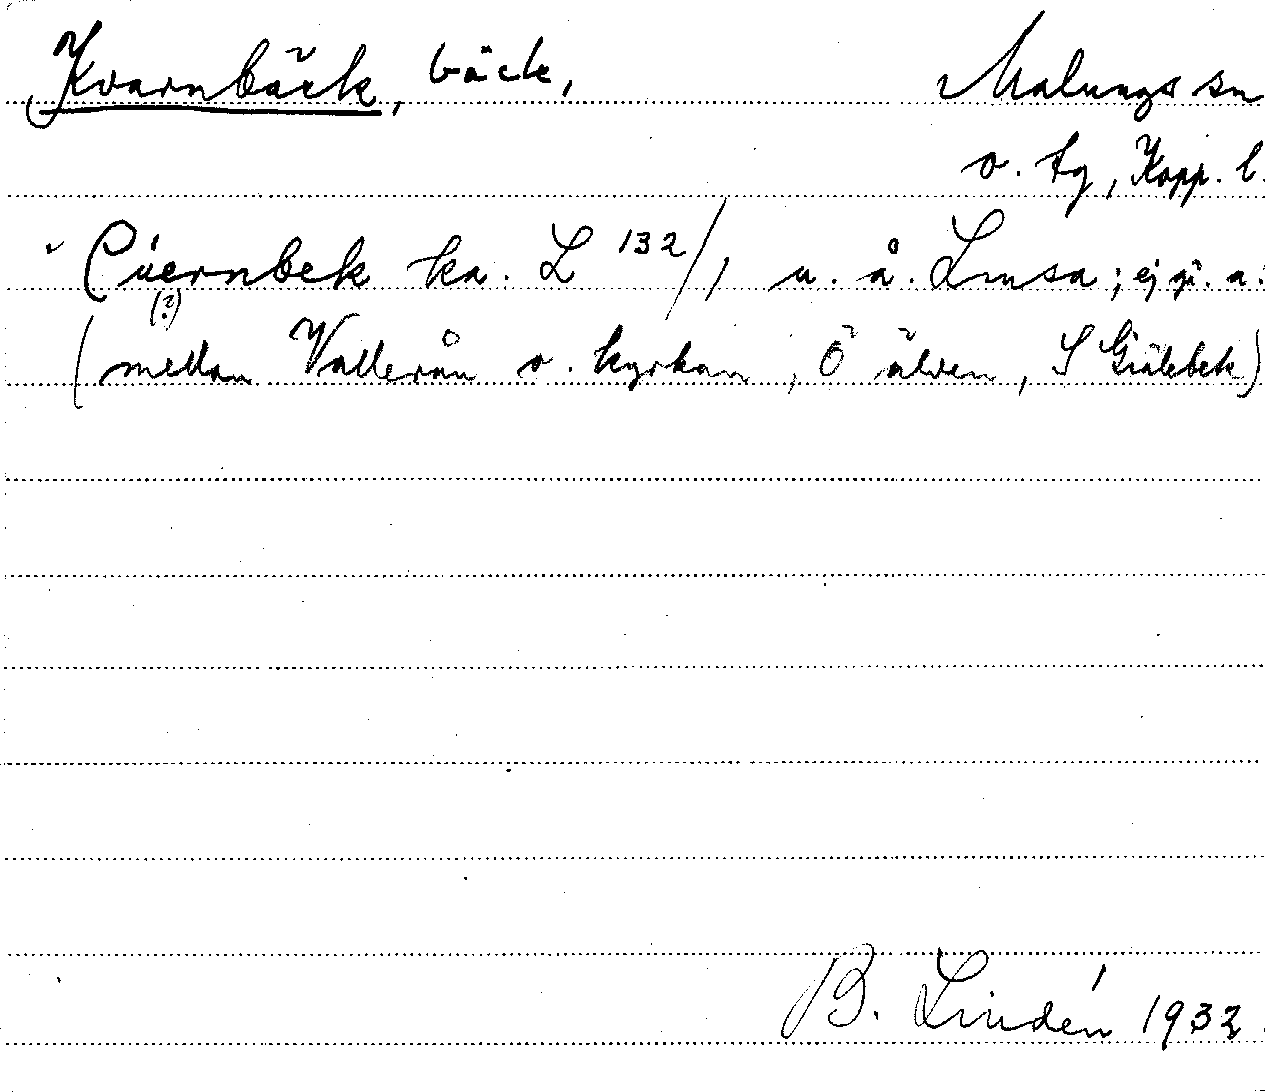 Kvarnbäck, bäck, Malungs sn
o. tg, Kopp. l.
Cuernbek ka. L 132/, u. å. Lmsa; ej gi. a.
(?)
(mellan Vallerån o. kyrkan, Ö älven, S Grålebek)
B. Lindén 1932.